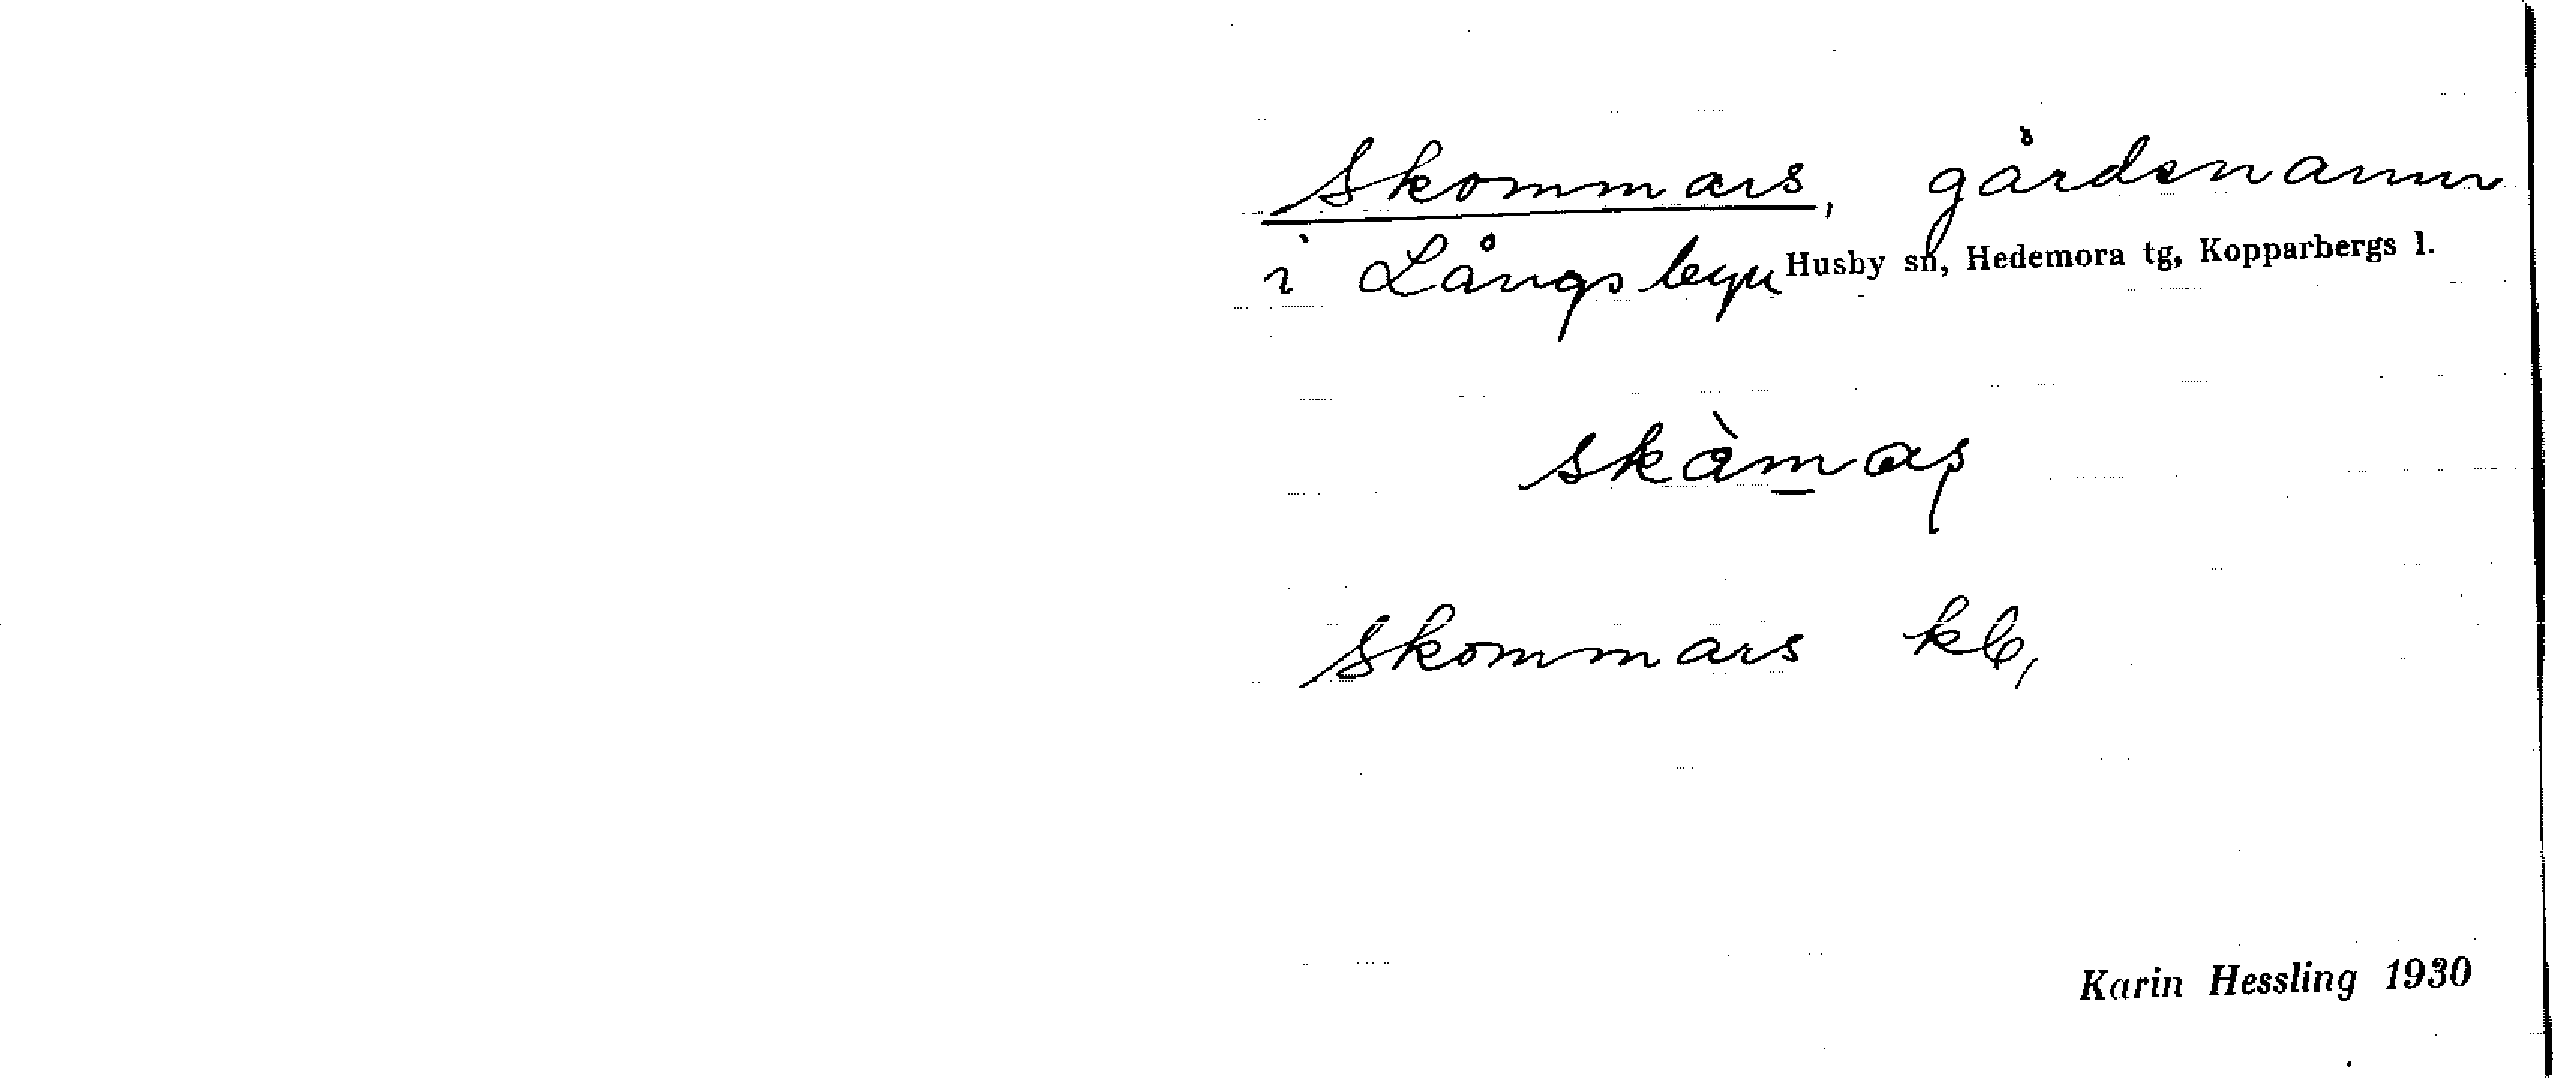 Skommars, gårdsnamn
i Långsbyn Husby sn, Hedemora tg, Kopparbergs l.
Skommars kb,
Karin Hessling 1930